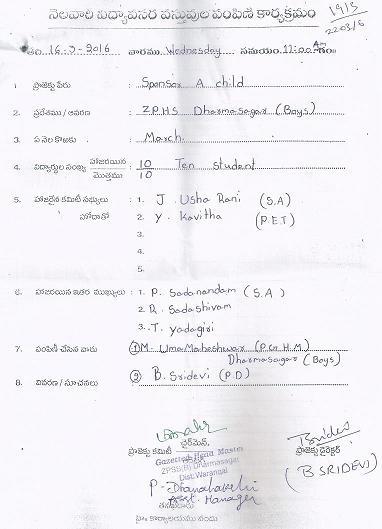 నెలవారి విద్యావసర వస్తువుల పంపిణి కార్యక్రమం
1913
220316
తేది 16-3-2016 వారము Wednesday సమయం 11:00 AM
1. ప్రాజెక్టు పేరు : Sponsor A child
2. ప్రదేశము / ఆవరణ : Z.P.H.S Dharmasagar (Boys)
3. ఏ నెల కొఱకు : March.
4. విద్యార్థుల సంఖ్య హాజరయిన 10 Ten student
మొత్తము 10
5. హాజరైన కమిటి సభ్యులు : 1. J. Usha Rani (S.A)
హోదాతో 2. Y. Kavitha (P.E.T)
3.
4.
5.
6. హాజరయిన ఇతర ముఖ్యులు : 1. P. Sadanandam (S.A)
2. D. Sadashivam
3. T. yadagiri
7. పంపిణీ చేసిన వారు ① M. Uma Maheshwar (P.G H.M)
Dharmasagar (Boys)
8. వివరణ / సూచనలు : ② B. Sridevi (P.D)
ప్రాజెక్టు కమిటీ చైర్మెన్,
Gazetted Head Master
ZPSS(B) Dharmasagar
Dist: Warangal
Bsridevi
ప్రాజెక్టు డైరెక్టర్
(B SRIDEVI)
P. Dhanalaxmi
Asst. Manager